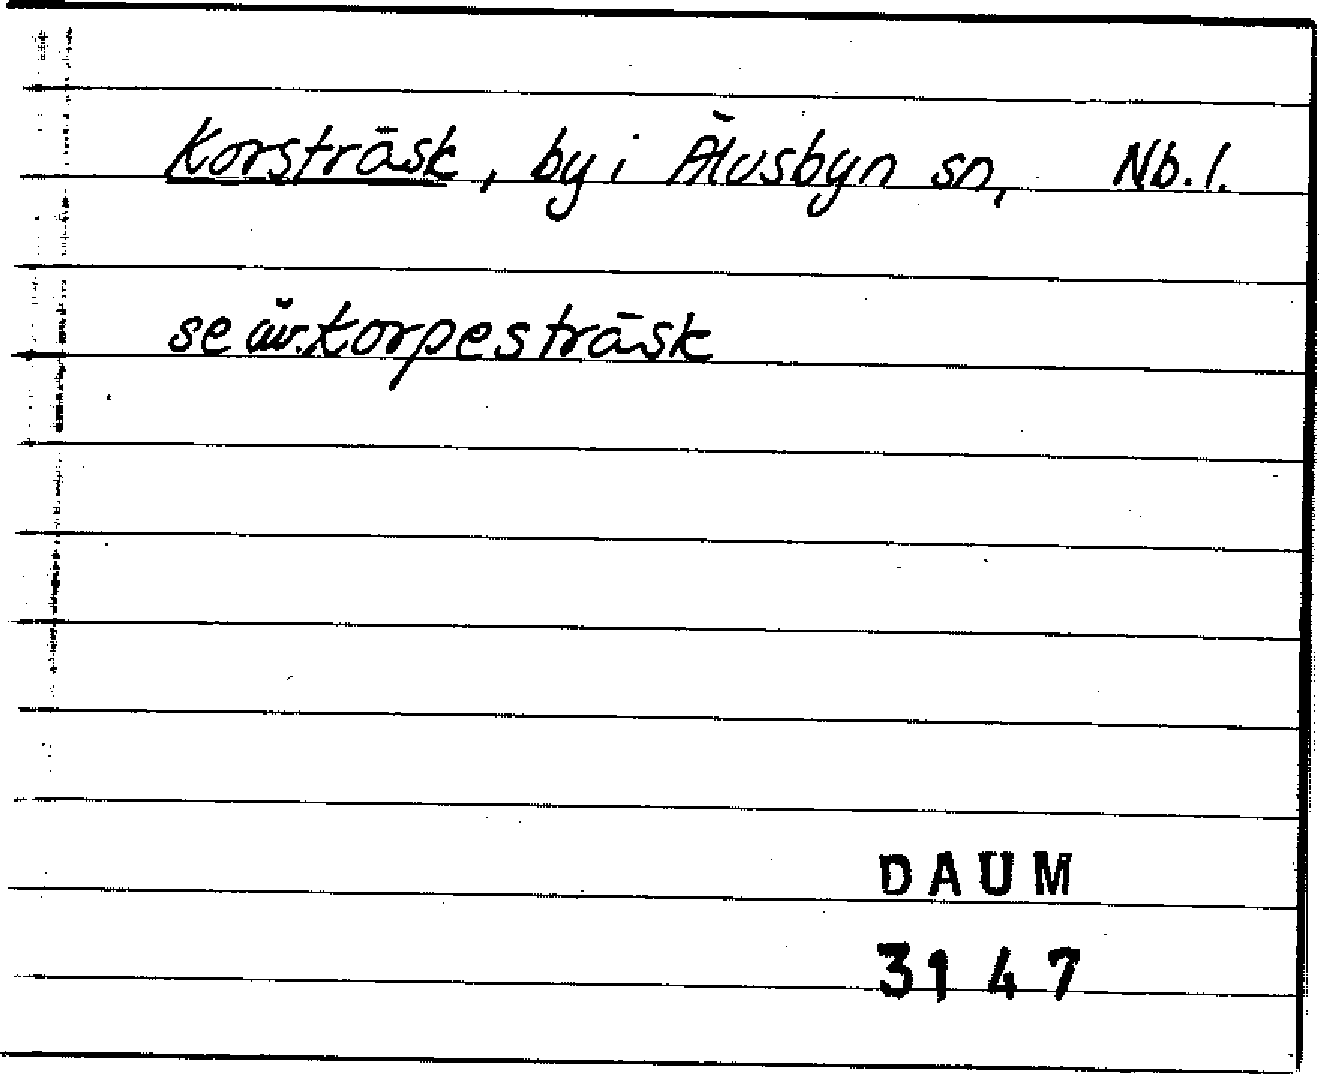 Korsträsk, by i Älvsbyn sn, Nb. l.
se äv. Korpesträsk
DAUM
3147